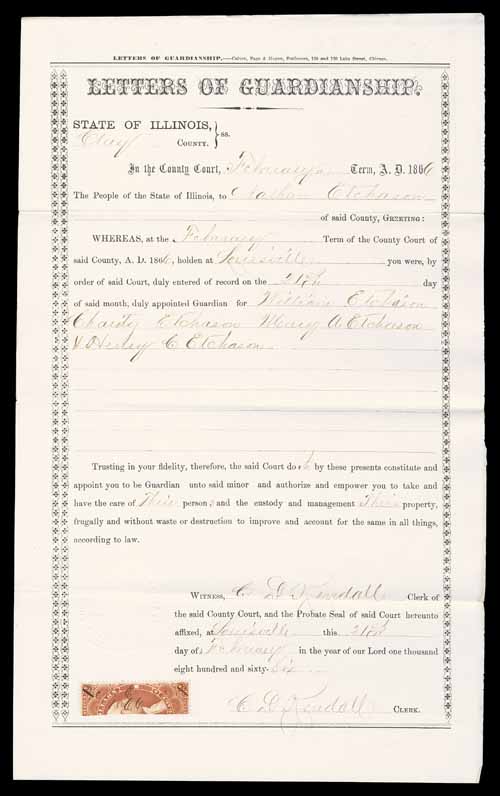 LETTERS OF GUARDIANSHIP.—Culver, Page & Hoyne, Stationers, 128 and 130 Lake Street, Chicago.
LETTERS OF GUARDIANSHIP.
STATE OF ILLINOIS,
Clay COUNTY. } ss.
In the County Court, February Term, A. D. 1866
The People of the State of Illinois, to Nathan Etchason
of said County, GREETING:
WHEREAS, at the February Term of the County Court of
said County, A. D. 1866, holden at Louisville you were, by
order of said Court, duly entered of record on the 21st day
of said month, duly appointed Guardian for William Etchason
Charity Etchason Mary A Etchason
& Henry C Etchason
Trusting in your fidelity, therefore, the said Court doth by these presents constitute and
appoint you to be Guardian unto said minor and authorize and empower you to take and
have the care of Their persons and the custody and management Their property,
frugally and without waste or destruction to improve and account for the same in all things,
according to law.
WITNESS, C D Kendall Clerk of
the said County Court, and the Probate Seal of said Court hereunto
affixed, at Louisville this 21st
day of February in the year of our Lord one thousand
eight hundred and sixty-Six
C D Kendall CLERK.